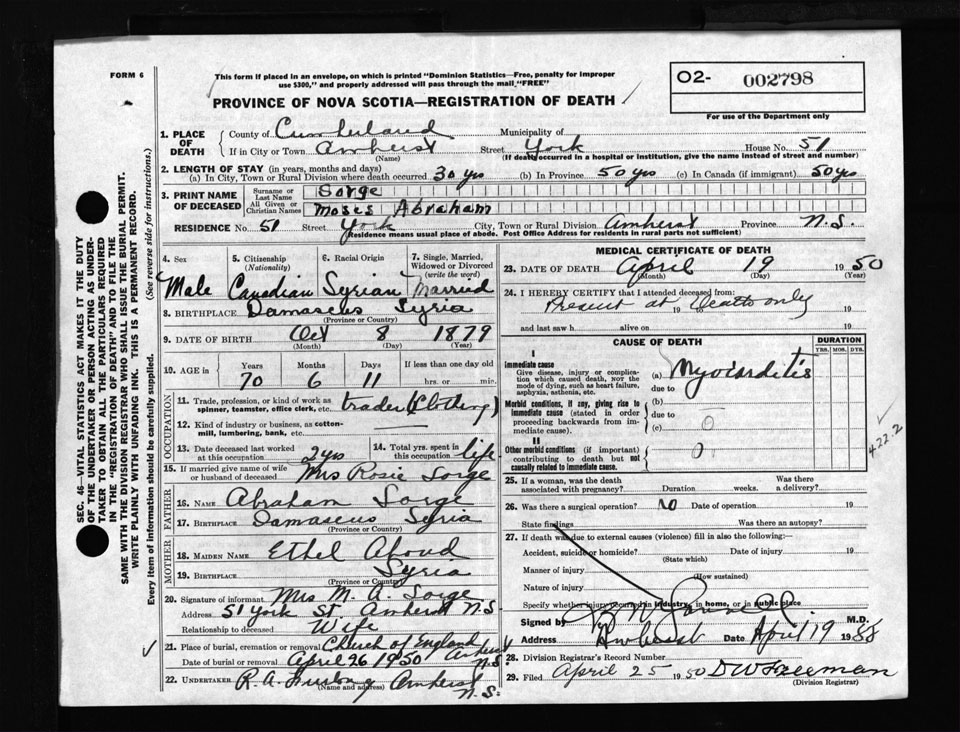 FORM 6
This form if placed in an envelope, on which is printed "Dominion Statistics—Free, penalty for improper
use $300," and properly addressed will pass through the mail "FREE"
O2- 002798
For use of the Department only
PROVINCE OF NOVA SCOTIA—REGISTRATION OF DEATH
1. PLACE OF DEATH
County of Cumberland Municipality of
If in City or Town Amherst Street York House No. 51
(Name) (If death occurred in a hospital or institution, give the name instead of street and number)
2. LENGTH OF STAY (in years, months and days)
(a) In City, Town or Rural Division where death occurred 30 yrs (b) In Province 50 yrs (c) In Canada (if immigrant) 50 yrs
3. PRINT NAME OF DECEASED
Surname or Last Name Sorge
All Given or Christian Names Moses Abraham
RESIDENCE No. 51 Street York City, Town or Rural Division Amherst Province N.S.
(Residence means usual place of abode. Post Office Address for residents in rural parts not sufficient)
4. Sex 5. Citizenship (Nationality) 6. Racial Origin 7. Single, Married, Widowed or Divorced (write the word)
Male Canadian Syrian Married
8. BIRTHPLACE Damascus Syria
(Province or Country)
9. DATE OF BIRTH Oct 8 1879
(Month) (Day) (Year)
10. AGE in Years Months Days If less than one day old
70 6 11 hrs. or min.
OCCUPATION
11. Trade, profession or kind of work as spinner, teamster, office clerk, etc. trader (Clothing)
12. Kind of industry or business, as cotton-mill, lumbering, bank, etc.
13. Date deceased last worked at this occupation 2 yrs
14. Total yrs. spent in this occupation life
15. If married give name of wife or husband of deceased Mrs Rosie Sorge
FATHER
16. NAME Abraham Sorge
17. BIRTHPLACE Damascus Syria
(Province or Country)
MOTHER
18. MAIDEN NAME Ethel Aboud
19. BIRTHPLACE Syria
(Province or Country)
20. Signature of informant Mrs M. A. Sorge
Address 51 York St Amherst N.S
Relationship to deceased Wife
21. Place of burial, cremation or removal Church of England Amherst
Date of burial or removal April 26 1950 N S
22. UNDERTAKER R. A. Amherst N.S.
(Name and address)
MEDICAL CERTIFICATE OF DEATH
23. DATE OF DEATH April 19 1950
(Month) (Day)
24. I HEREBY CERTIFY that I attended deceased from:
Present at Death only
19 to 19
and last saw h alive on 19
CAUSE OF DEATH DURATION
YRS. MOS. DYS.
I
Immediate cause
Give disease, injury or complication which caused death, not the mode of dying, such as heart failure, asphyxia, asthenia, etc.
(a) Myocarditis
due to
Morbid conditions, if any, giving rise to immediate cause (stated in order proceeding backwards from immediate cause).
(b)
due to
(c) 0
II
Other morbid conditions (if important) contributing to death but not causally related to immediate cause.
0
422.2
25. If a woman, was the death associated with pregnancy? Duration weeks. Was there a delivery?
26. Was there a surgical operation? No Date of operation 19
State findings Was there an autopsy?
27. If death was due to external causes (violence) fill in also the following:—
Accident, suicide or homicide? Date of injury 19
(State which)
Manner of injury
(How sustained)
Nature of injury
Specify whether injury occurred in industry, in home, or in public place
Signed by M.D.
Address Amherst Date April 19 19
28. Division Registrar's Record Number
29. Filed April 25 1950 D W Freeman
(Division Registrar)
SEC. 46—VITAL STATISTICS ACT MAKES IT THE DUTY
OF THE UNDERTAKER OR PERSON ACTING AS UNDER-
TAKER TO OBTAIN ALL THE PARTICULARS REQUIRED
IN THE "REGISTRATION OF DEATH" AND TO FILE THE
SAME WITH THE DIVISION REGISTRAR WHO SHALL ISSUE THE BURIAL PERMIT.
WRITE PLAINLY WITH UNFADING INK. THIS IS A PERMANENT RECORD.
Every item of information should be carefully supplied. (See reverse side for instructions.)